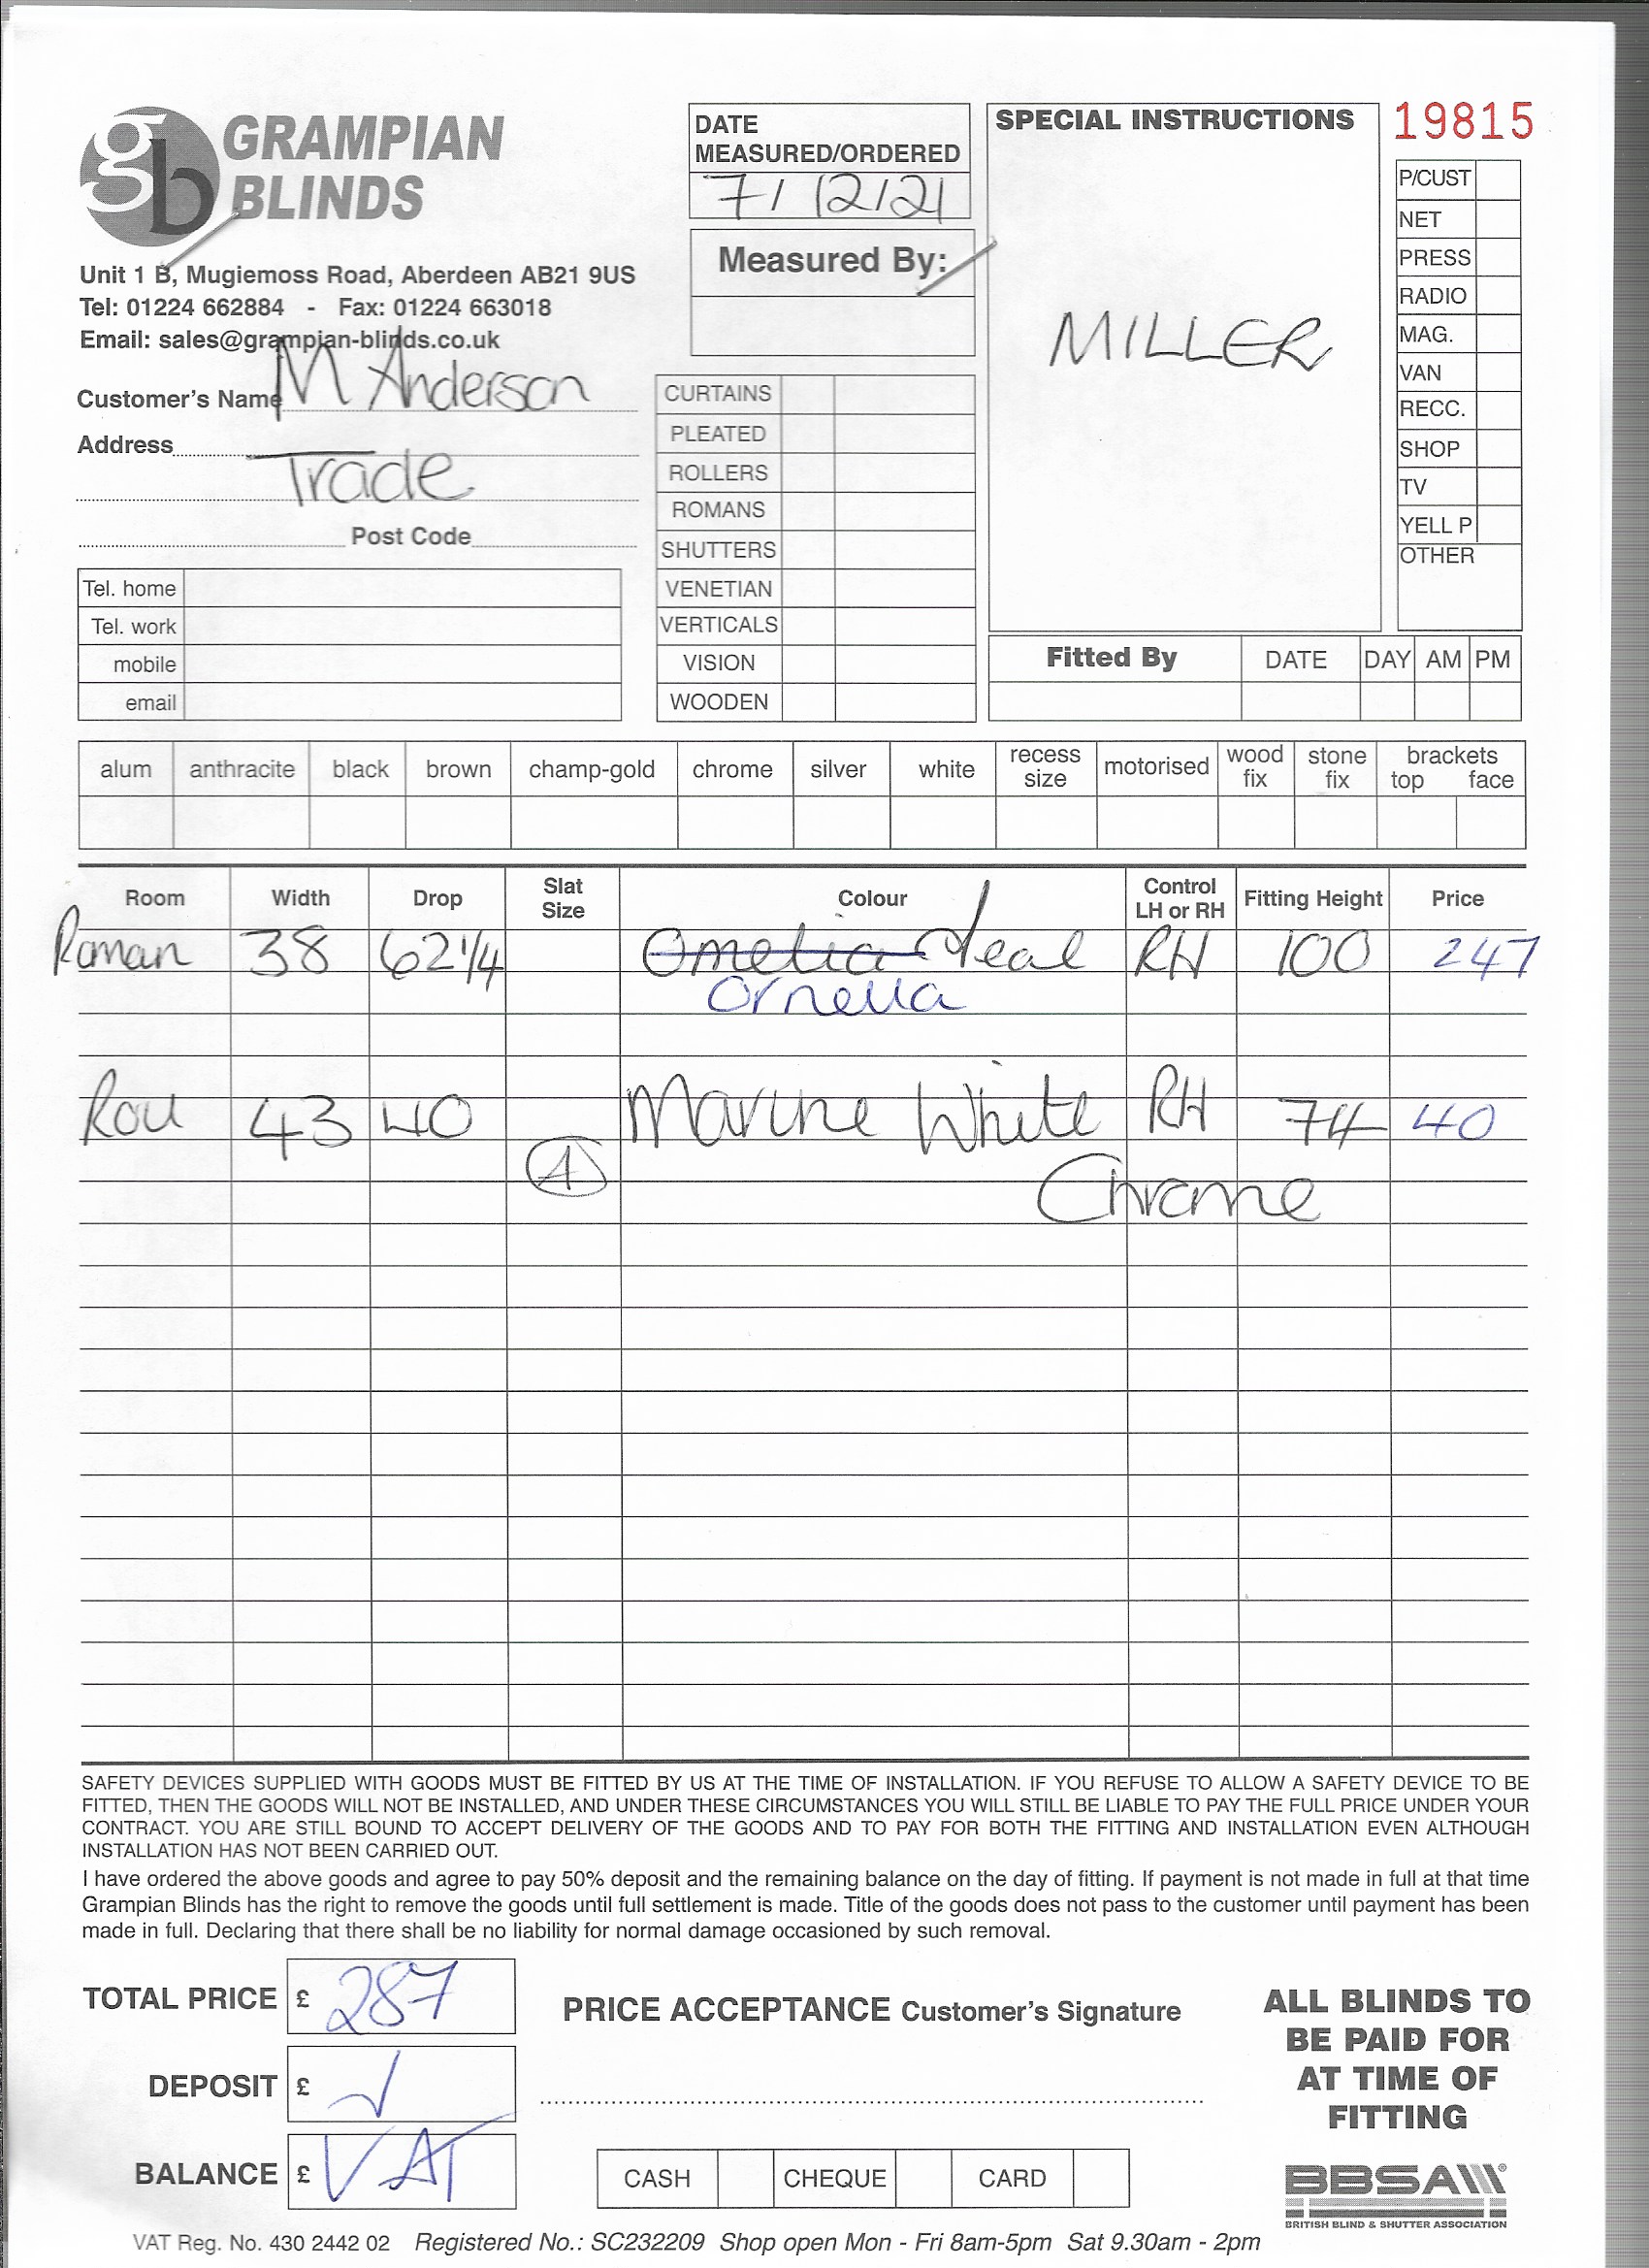 gb GRAMPIAN
BLINDS
Unit 1 B, Mugiemoss Road, Aberdeen AB21 9US
Tel: 01224 662884 - Fax: 01224 663018
Email: sales@grampian-blinds.co.uk
Customer's Name M Anderson
Address
Trade
Post Code
Tel. home
Tel. work
mobile
email
DATE
MEASURED/ORDERED
7/12/21
Measured By:
CURTAINS
PLEATED
ROLLERS
ROMANS
SHUTTERS
VENETIAN
VERTICALS
VISION
WOODEN
SPECIAL INSTRUCTIONS
MILLER
19815
P/CUST
NET
PRESS
RADIO
MAG.
VAN
RECC.
SHOP
TV
YELL P
OTHER
Fitted By DATE DAY AM PM
alum anthracite black brown champ-gold chrome silver white recess size motorised wood fix stone fix brackets top face
Room Width Drop Slat Size Colour Control LH or RH Fitting Height Price
Roman 38 62 1/4 Omelia teal RH 100 247
Ornella
Roll 43 40 Marine White RH 74 40
A Chrome
SAFETY DEVICES SUPPLIED WITH GOODS MUST BE FITTED BY US AT THE TIME OF INSTALLATION. IF YOU REFUSE TO ALLOW A SAFETY DEVICE TO BE
FITTED, THEN THE GOODS WILL NOT BE INSTALLED, AND UNDER THESE CIRCUMSTANCES YOU WILL STILL BE LIABLE TO PAY THE FULL PRICE UNDER YOUR
CONTRACT. YOU ARE STILL BOUND TO ACCEPT DELIVERY OF THE GOODS AND TO PAY FOR BOTH THE FITTING AND INSTALLATION EVEN ALTHOUGH
INSTALLATION HAS NOT BEEN CARRIED OUT.
I have ordered the above goods and agree to pay 50% deposit and the remaining balance on the day of fitting. If payment is not made in full at that time
Grampian Blinds has the right to remove the goods until full settlement is made. Title of the goods does not pass to the customer until payment has been
made in full. Declaring that there shall be no liability for normal damage occasioned by such removal.
TOTAL PRICE £ 287
DEPOSIT £ √
BALANCE £ VAT
PRICE ACCEPTANCE Customer's Signature
CASH CHEQUE CARD
ALL BLINDS TO
BE PAID FOR
AT TIME OF
FITTING
BBSA®
BRITISH BLIND & SHUTTER ASSOCIATION
VAT Reg. No. 430 2442 02 Registered No.: SC232209 Shop open Mon - Fri 8am-5pm Sat 9.30am - 2pm